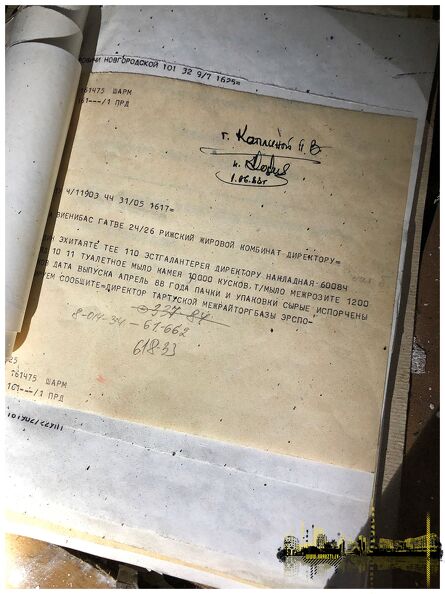 НОВГОРОДСКОЙ 101 32 9/7 1625=
161475 ШАРМ
161---/1 ПРД
г. Каплиной Н В
1.06.88г
4/11903 ЧЧ 31/05 1617=
ВИЕНИБАС ГАТВЕ 24/26 РИЖСКИЙ ЖИРОВОЙ КОМБИНАТ ДИРЕКТОРУ=
ЭХИТАЯТЕ ТЕЕ 110 ЭСТГАЛАНТЕРЕЯ ДИРЕКТОРУ НАКЛАДНАЯ 60084
10 11 ТУАЛЕТНОЕ МЫЛО КАМЕЯ 10000 КУСКОВ. Т/МЫЛО МЕРОЗИТЕ 1200
ДАТА ВЫПУСКА АПРЕЛЬ 88 ГОДА ПАЧКИ И УПАКОВКИ СЫРЫЕ ИСПОРЧЕНЫ
СООБЩИТЕ=ДИРЕКТОР ТАРТУСКОЙ МЕЖРАЙТОРГБАЗЫ ЭРСПО-
337 84
8-014-34-61-662
618-33
25
161475 ШАРМ
161---/1 ПРД